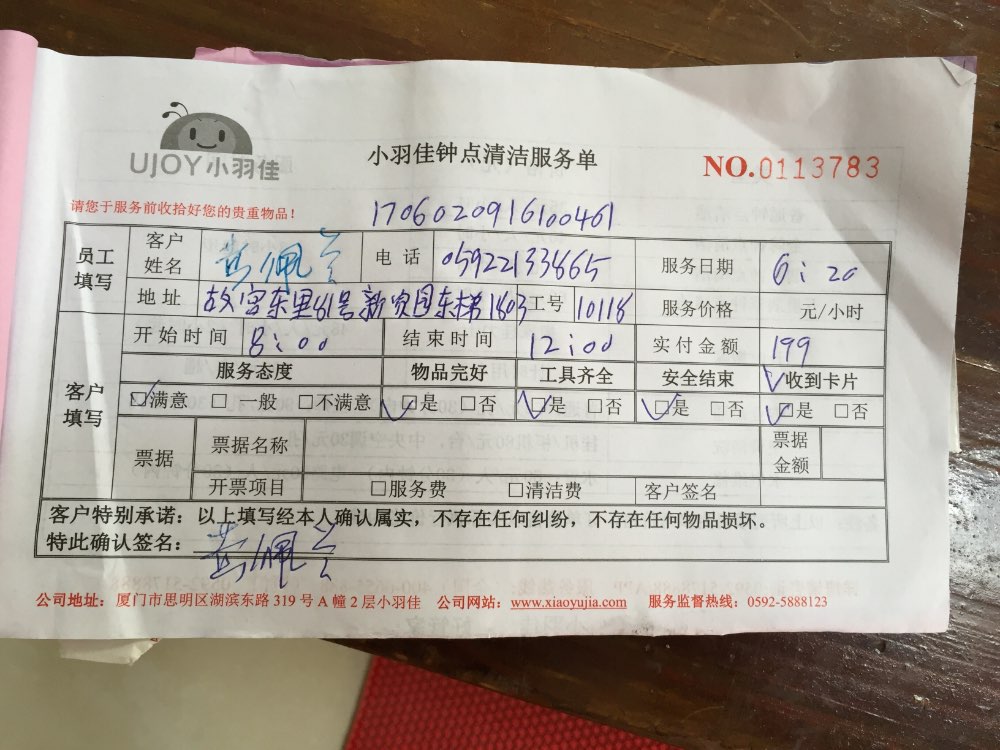 UJOY小羽佳
小羽佳钟点清洁服务单
NO.0113783
请您于服务前收拾好您的贵重物品！
1706020916100461
员工填写 客户姓名 黄佩兰 电话 05922133865 服务日期 6:20
地址 故宫东里81号新资园东梯1803 工号 10118 服务价格 元/小时
客户填写 开始时间 8:00 结束时间 12:00 实付金额 199
服务态度 物品完好 工具齐全 安全结束 收到卡片
□满意 □一般 □不满意 □是 □否 □是 □否 □是 □否 □是 □否
票据 票据名称 票据金额
开票项目 □服务费 □清洁费 客户签名
客户特别承诺：以上填写经本人确认属实，不存在任何纠纷，不存在任何物品损坏。
特此确认签名：黄佩兰
公司地址：厦门市思明区湖滨东路 319 号 A 幢 2 层小羽佳 公司网站：www.xiaoyujia.com 服务监督热线：0592-5888123